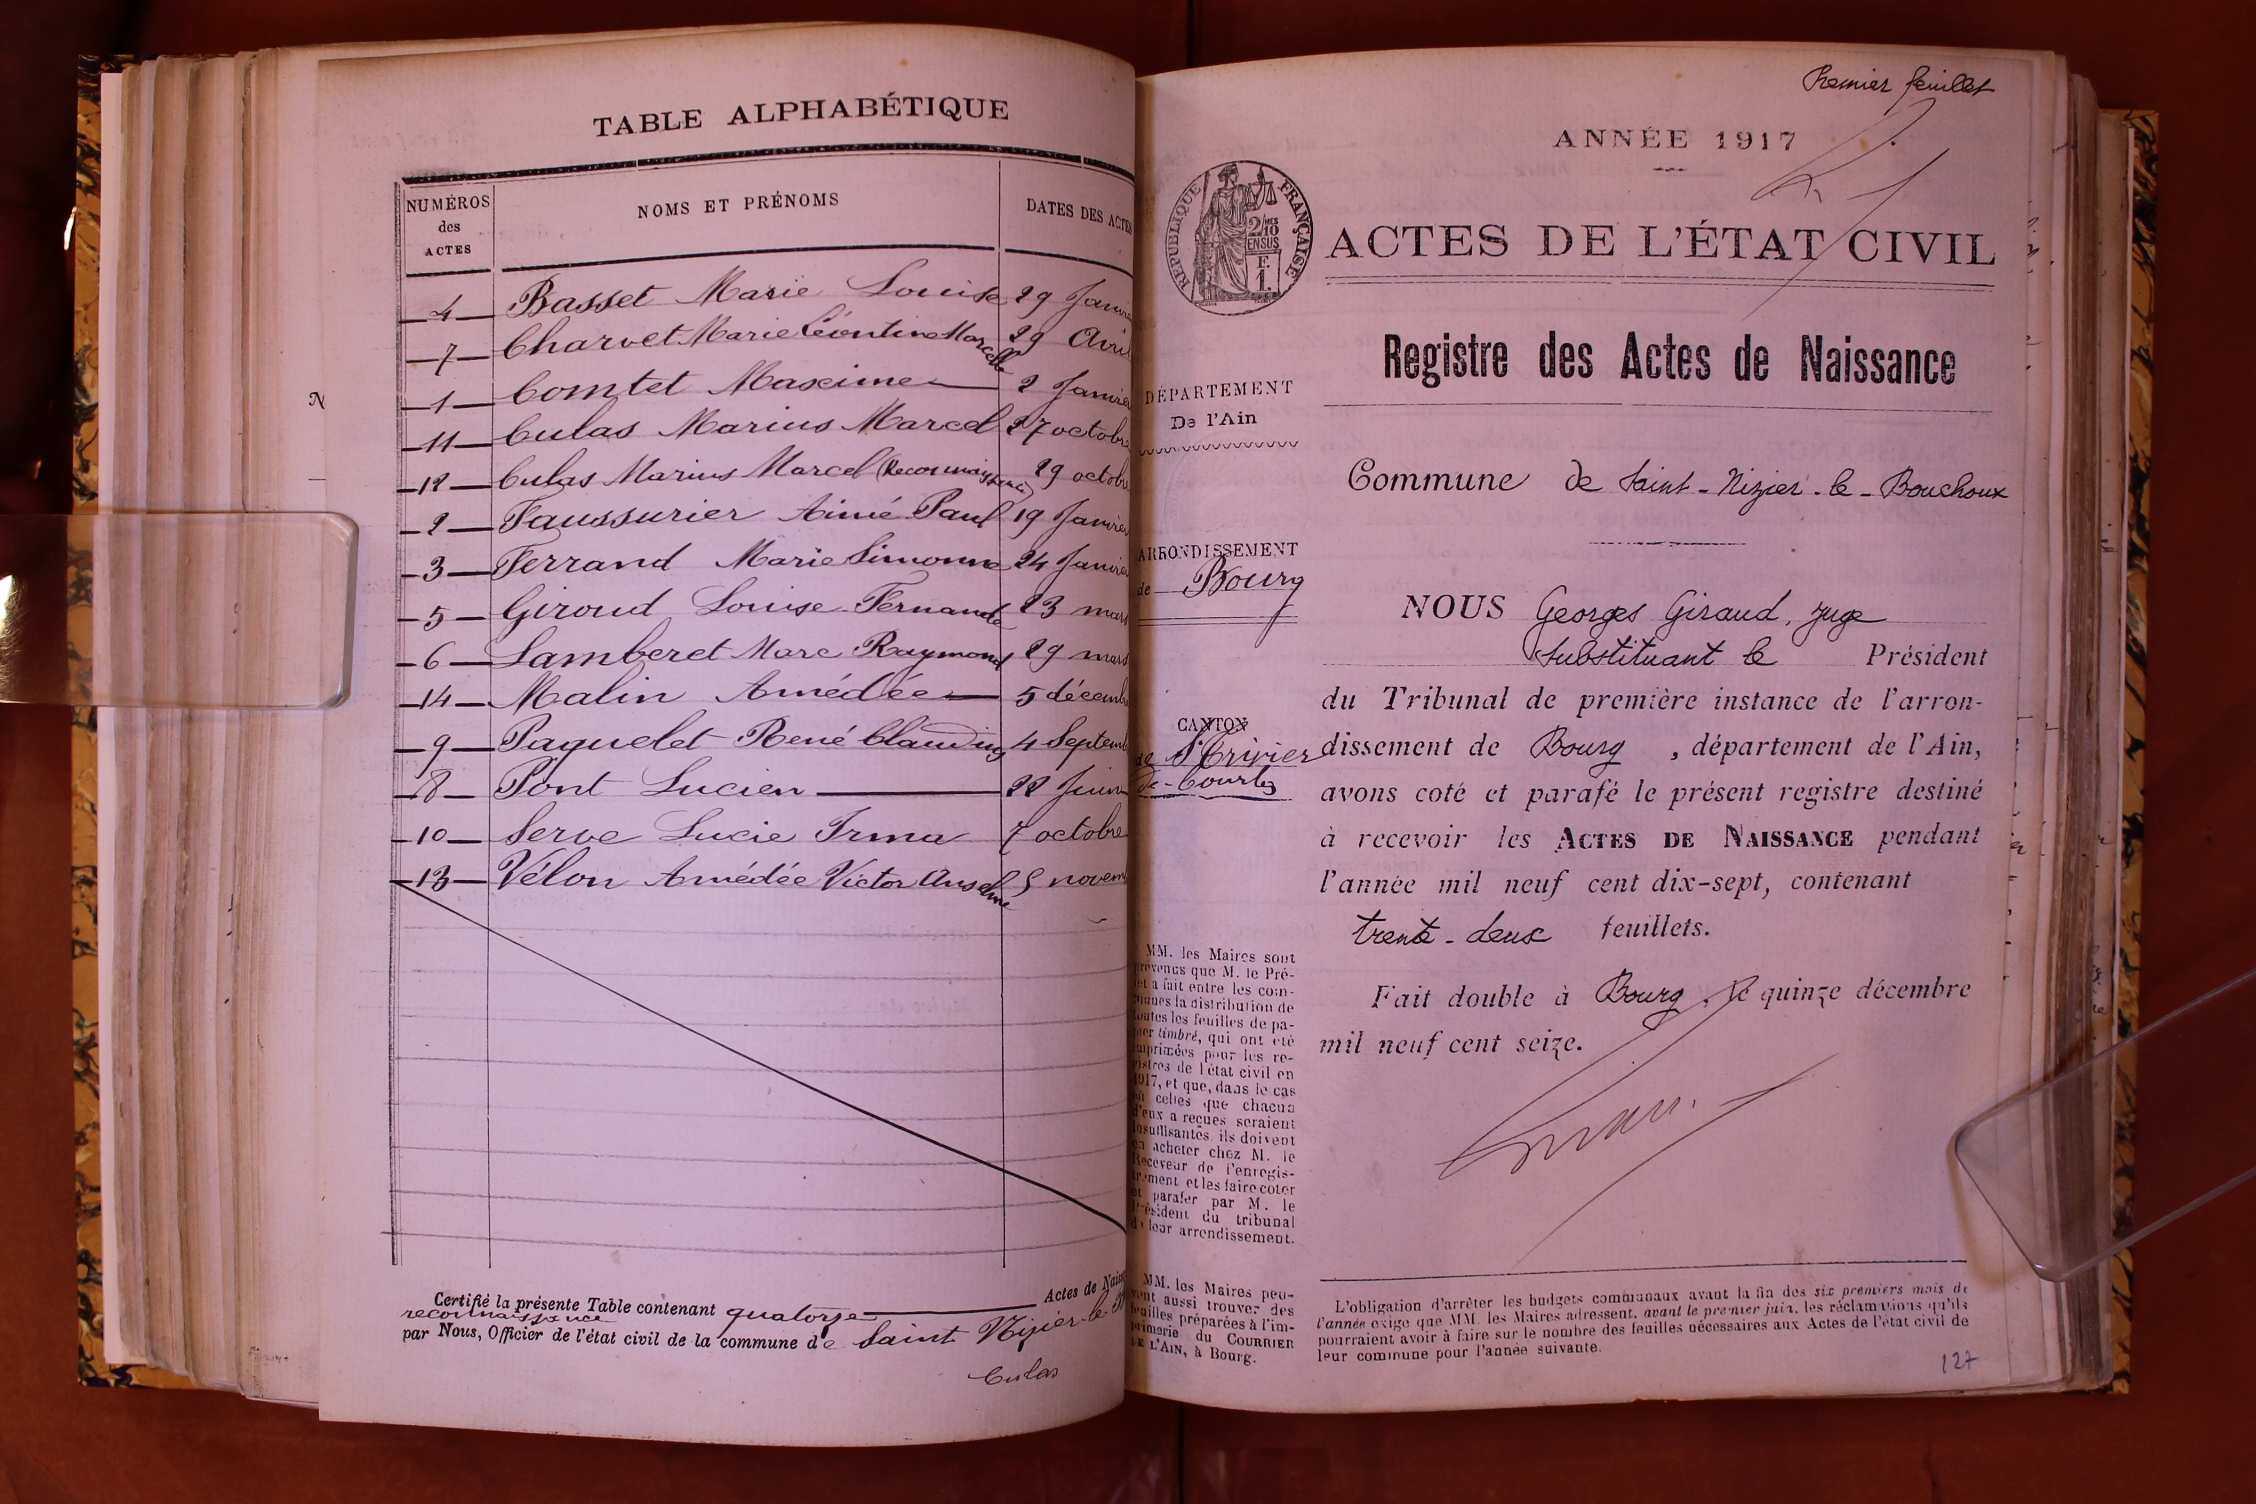 TABLE ALPHABÉTIQUE
NUMÉROS des ACTES NOMS ET PRÉNOMS DATES DES ACTES
4 Basset Marie Louise 29 Janvier
7 Charvet Marie Léontine Marcelle 29 Avril
1 Comtet Maxime 2 Janvier
11 Culas Marius Marcel 27 octobre
12 Culas Marius Marcel (Reconnaissance) 29 octobre
2 Faussurier Aimé Paul 19 Janvier
3 Ferrand Marie Simonne 24 Janvier
5 Giroud Louise Fernande 23 mars
6 Lamberet Marc Raymond 29 mars
14 Malin Amédée 5 décemb
9 Paquelet René Claudius 4 Septemb
8 Pont Lucien 22 Juin
10 Serve Lucie Irma 7 octobre
13 Vélon Amédée Victor Anselme 5 novem
Certifié la présente Table contenant quatorze Actes de Nais
reconnaissance
par Nous, Officier de l'état civil de la commune de Saint Nizier-le-B
Culas
N
Premier feuillet
ANNÉE 1917
RÉPUBLIQUE FRANÇAISE
2/10 EN SUS
F. 1.
ACTES DE L'ÉTAT CIVIL
Registre des Actes de Naissance
DÉPARTEMENT
De l'Ain
Commune de Saint-Nizier-le-Bouchoux
ARRONDISSEMENT
de Bourg
CANTON
de St Trivier
de-Courtes
NOUS Georges Giraud, juge
substituant le Président
du Tribunal de première instance de l'arron-
dissement de Bourg, département de l'Ain,
avons coté et parafé le présent registre destiné
à recevoir les ACTES DE NAISSANCE pendant
l'année mil neuf cent dix-sept, contenant
trente-deux feuillets.
Fait double à Bourg, le quinze décembre
mil neuf cent seize.
MM. les Maires sont
prévenus que M. le Pré-
fet a fait entre les com-
munes la distribution de
toutes les feuilles de pa-
pier timbré, qui ont été
imprimées pour les re-
gistres de l'état civil en
1917, et que, dans le cas
où celles que chacun
d'eux a reçues seraient
insuffisantes, ils doivent
en acheter chez M. le
Receveur de l'enregis-
trement et les faire coter
et parafer par M. le
Président du tribunal
de leur arrondissement.
MM. les Maires peu-
vent aussi trouver des
feuilles préparées à l'im-
primerie du COURRIER
DE L'AIN, à Bourg.
L'obligation d'arrêter les budgets communaux avant la fin des six premiers mois de
l'année exige que MM. les Maires adressent, avant le premier juin, les réclamations qu'ils
pourraient avoir à faire sur le nombre des feuilles nécessaires aux Actes de l'état civil de
leur commune pour l'année suivante.
127